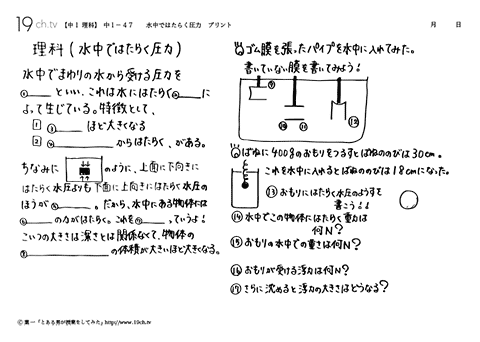 19ch.tv 【中1 理科】 中1-47 水中ではたらく圧力 プリント 月 日
理科(水中ではたらく圧力)
水中でまわりの水から受ける圧力を
①といい、これは水にはたらく②に
よって生じている。特徴として、
1 ③ ほど大きくなる
2 ④ からはたらく、がある。
ちなみに のように、上面に下向きに
はたらく水圧よりも下面に上向きにはたらく水圧の
ほうが⑤。だから、水中にある物体には
⑥の力がはたらく。これを⑦っていうよ!
こいつの大きさは深さとは関係なくて、物体の
⑧の体積が大きいほど大きくなる。
ゴム膜を張ったパイプを水中に入れてみた。
書いていない膜を書いてみよう!
⑨
⑩ ⑪ ⑫
ばねに400gのおもりをつるすとばねののびは30cm。
これを水中に入れるとばねののびは18cmになった。
⑬おもりにはたらく水圧のようすを
書こう!!
⑭水中でこの物体にはたらく重力は
何N?
⑮おもりの水中での重さは何N?
⑯おもりが受ける浮力は何N?
⑰さらに沈めると浮力の大きさはどうなる?
© 葉一「とある男が授業をしてみた」http://www.19ch.tv